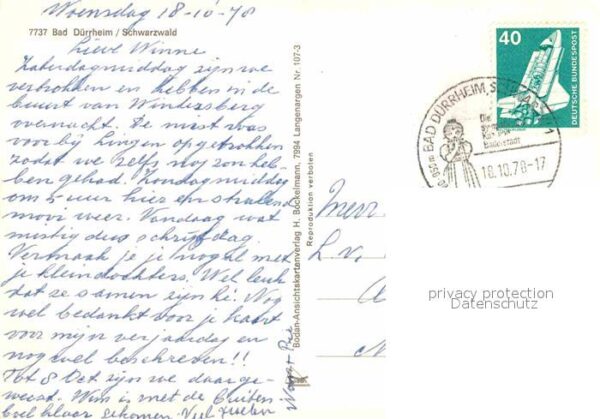 Woensdag 18-10-78
7737 Bad Dürrheim / Schwarzwald
Lieve Winne
Zaterdagmiddag zijn we
vertrokken en hebben in de
buurt van
overnacht. De mist was
voorbij Lingen opgetrokken
zodat we zelfs nog zon heb-
ben gehad. Zondagmiddag
om 5 uur hier en stralend
mooi weer. Vandaag wat
mistig dus schrijfdag.
Vermaak je je nogal met
je kleindochters. Wel leuk
dat ze samen zijn hè. Nog
wel bedankt voor je kaart
voor mijn verjaardag en
nog wel beschreven!!
Tot 8 Oct zijn we daar ge-
weest. Wim is met de buiten-
boel klaar gekomen. Veel
Bodan-Ansichtskartenverlag H. Bockelmann, 7994 Langenargen Nr. 107-3
Reproduktion verboten
40
DEUTSCHE BUNDESPOST
BAD DÜRRHEIM
Die
18.10.78-17
Mevr
privacy protection
Datenschutz